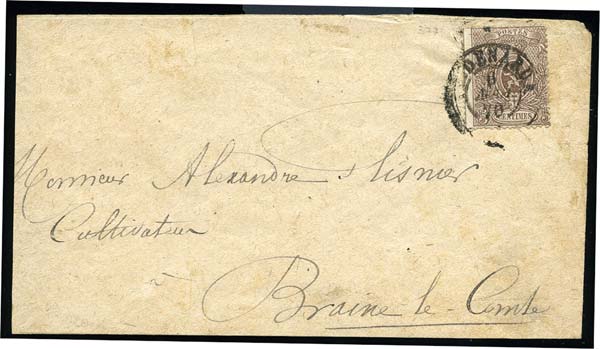 POSTES
CENTIMES
70
Monsieur Alexandre Slisnier
Cultivateur
à
Braine-le-Comte